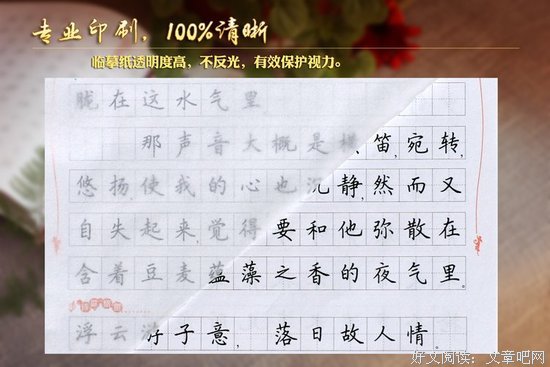 专业印刷，100%清晰
临摹纸透明度高，不反光，有效保护视力。
胧在这水气里
那声音大概是横笛宛转，
悠扬使我的心也沉静然而又
自失起来，觉得要和他弥散在
含着豆麦蕴藻之香的夜气里。
浮云游子意，落日故人情。
好文阅读：文章吧网